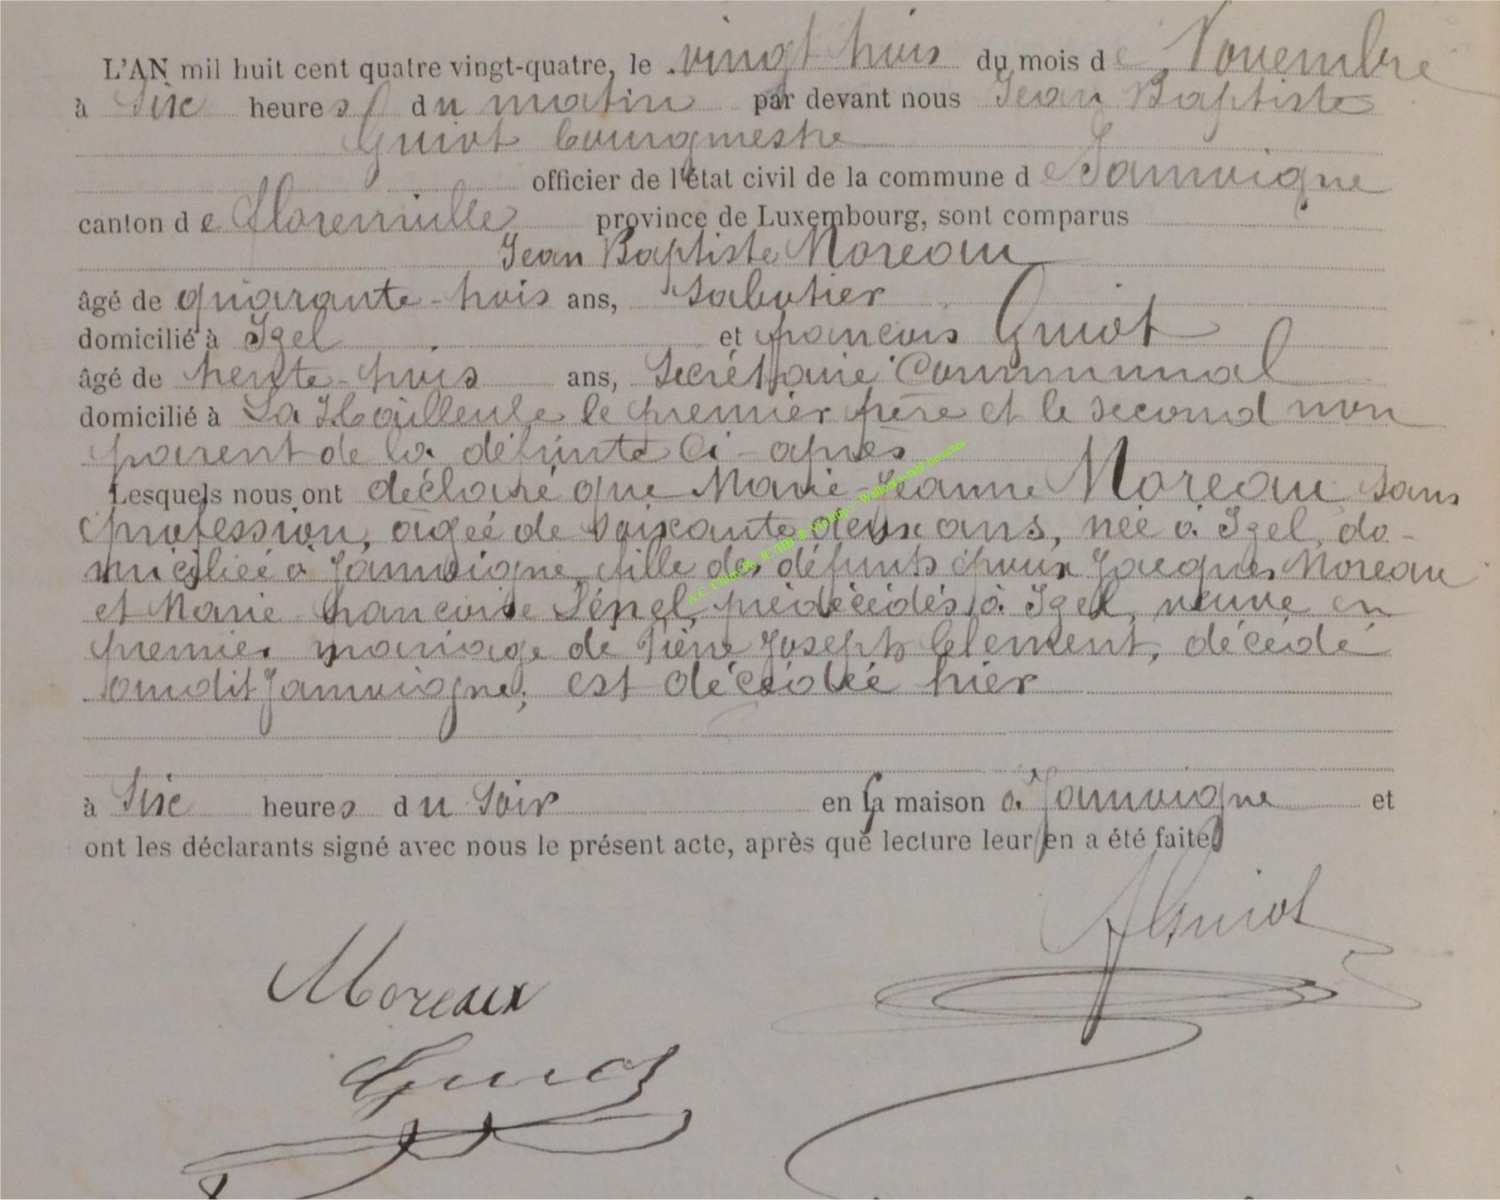 L'AN mil huit cent quatre vingt-quatre, le vingt huis du mois de Novembre
à Sise heures du matin par devant nous Jean Baptiste
Guiot bourgmestre
officier de l'état civil de la commune de Jamoigne
canton de Florenville province de Luxembourg, sont comparus
Jean Baptiste Moreau
âgé de quarante-huis ans, Sabotier
domicilié à Izel et francois Guiot
âgé de trente-huis ans, Secrétaire Communal
domicilié à La Hailleule le premier père et le second non
parent de la défunte ci-après
Lesquels nous ont déclaré que Marie-Jeanne Moreau sans
profession, âgée de soixante deux ans, née à Izel, do-
miciliée à Jamoigne, fille des défunts époux Jacques Moreau
et Marie francoise prédécédés à Izel, veuve en
premier mariage de Pierre Joseph Clement, décédé
audit Jamoigne, est décédée hier
à Sise heures du Soir en sa maison à Jamoigne et
ont les déclarants signé avec nous le présent acte, après que lecture leur en a été faite
Guiot
Moreaux
Guiot